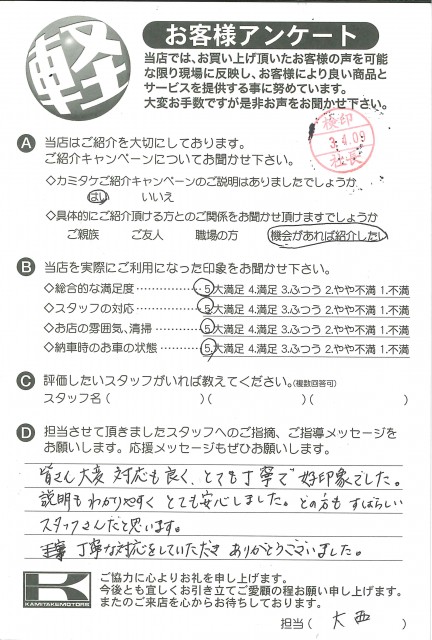 軽
お客様アンケート
当店では、お買い上げ頂いたお客様の声を可能
な限り現場に反映し、お客様により良い商品と
サービスを提供する事に努めています。
大変お手数ですが是非お声をお聞かせ下さい。
検印
3.4.09
社長
A 当店はご紹介を大切にしております。
ご紹介キャンペーンについてお聞かせ下さい。
◇カミタケご紹介キャンペーンのご説明はありましたでしょうか
はい いいえ
◇具体的にご紹介頂ける方とのご関係をお聞かせ頂けますでしょうか
ご親族 ご友人 職場の方 機会があれば紹介したい
B 当店を実際にご利用になった印象をお聞かせ下さい。
◇総合的な満足度 5.大満足 4.満足 3.ふつう 2.やや不満 1.不満
◇スタッフの対応 5.大満足 4.満足 3.ふつう 2.やや不満 1.不満
◇お店の雰囲気、清掃 5.大満足 4.満足 3.ふつう 2.やや不満 1.不満
◇納車時のお車の状態 5.大満足 4.満足 3.ふつう 2.やや不満 1.不満
C 評価したいスタッフがいれば教えてください。(複数回答可)
スタッフ名( )( )( )
D 担当させて頂きましたスタッフへのご指摘、ご指導メッセージを
お願いします。応援メッセージもぜひお願いします。
皆さん大変対応も良く、とても丁寧で好印象でした。
説明もわかりやすくとても安心しました。どの方もすばらしい
スタッフさんだと思います。
丁寧な対応をしていただきありがとうございました。
K
KAMITAKE MOTORS
ご協力に心よりお礼を申し上げます。
今後とも宜しくお引き立てご愛顧の程お願い申し上げます。
またのご来店を心からお待ちしております。
担当( 大西 )